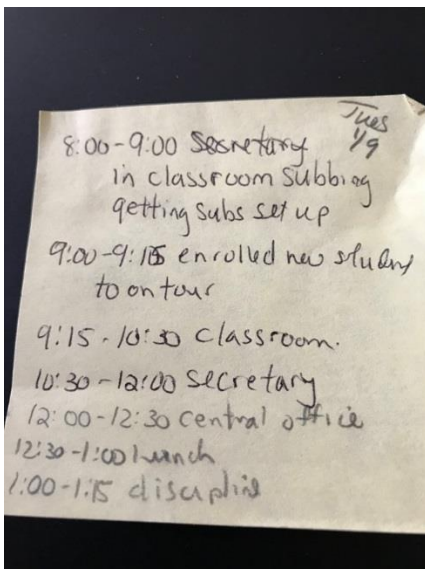 Tues
1/9
8:00-9:00 Secretary
in classroom subbing
getting subs set up
9:00-9:15 enrolled new student
to on tour
9:15-10:30 Classroom.
10:30-12:00 Secretary
12:00-12:30 central office
12:30-1:00 lunch
1:00-1:15 discipline